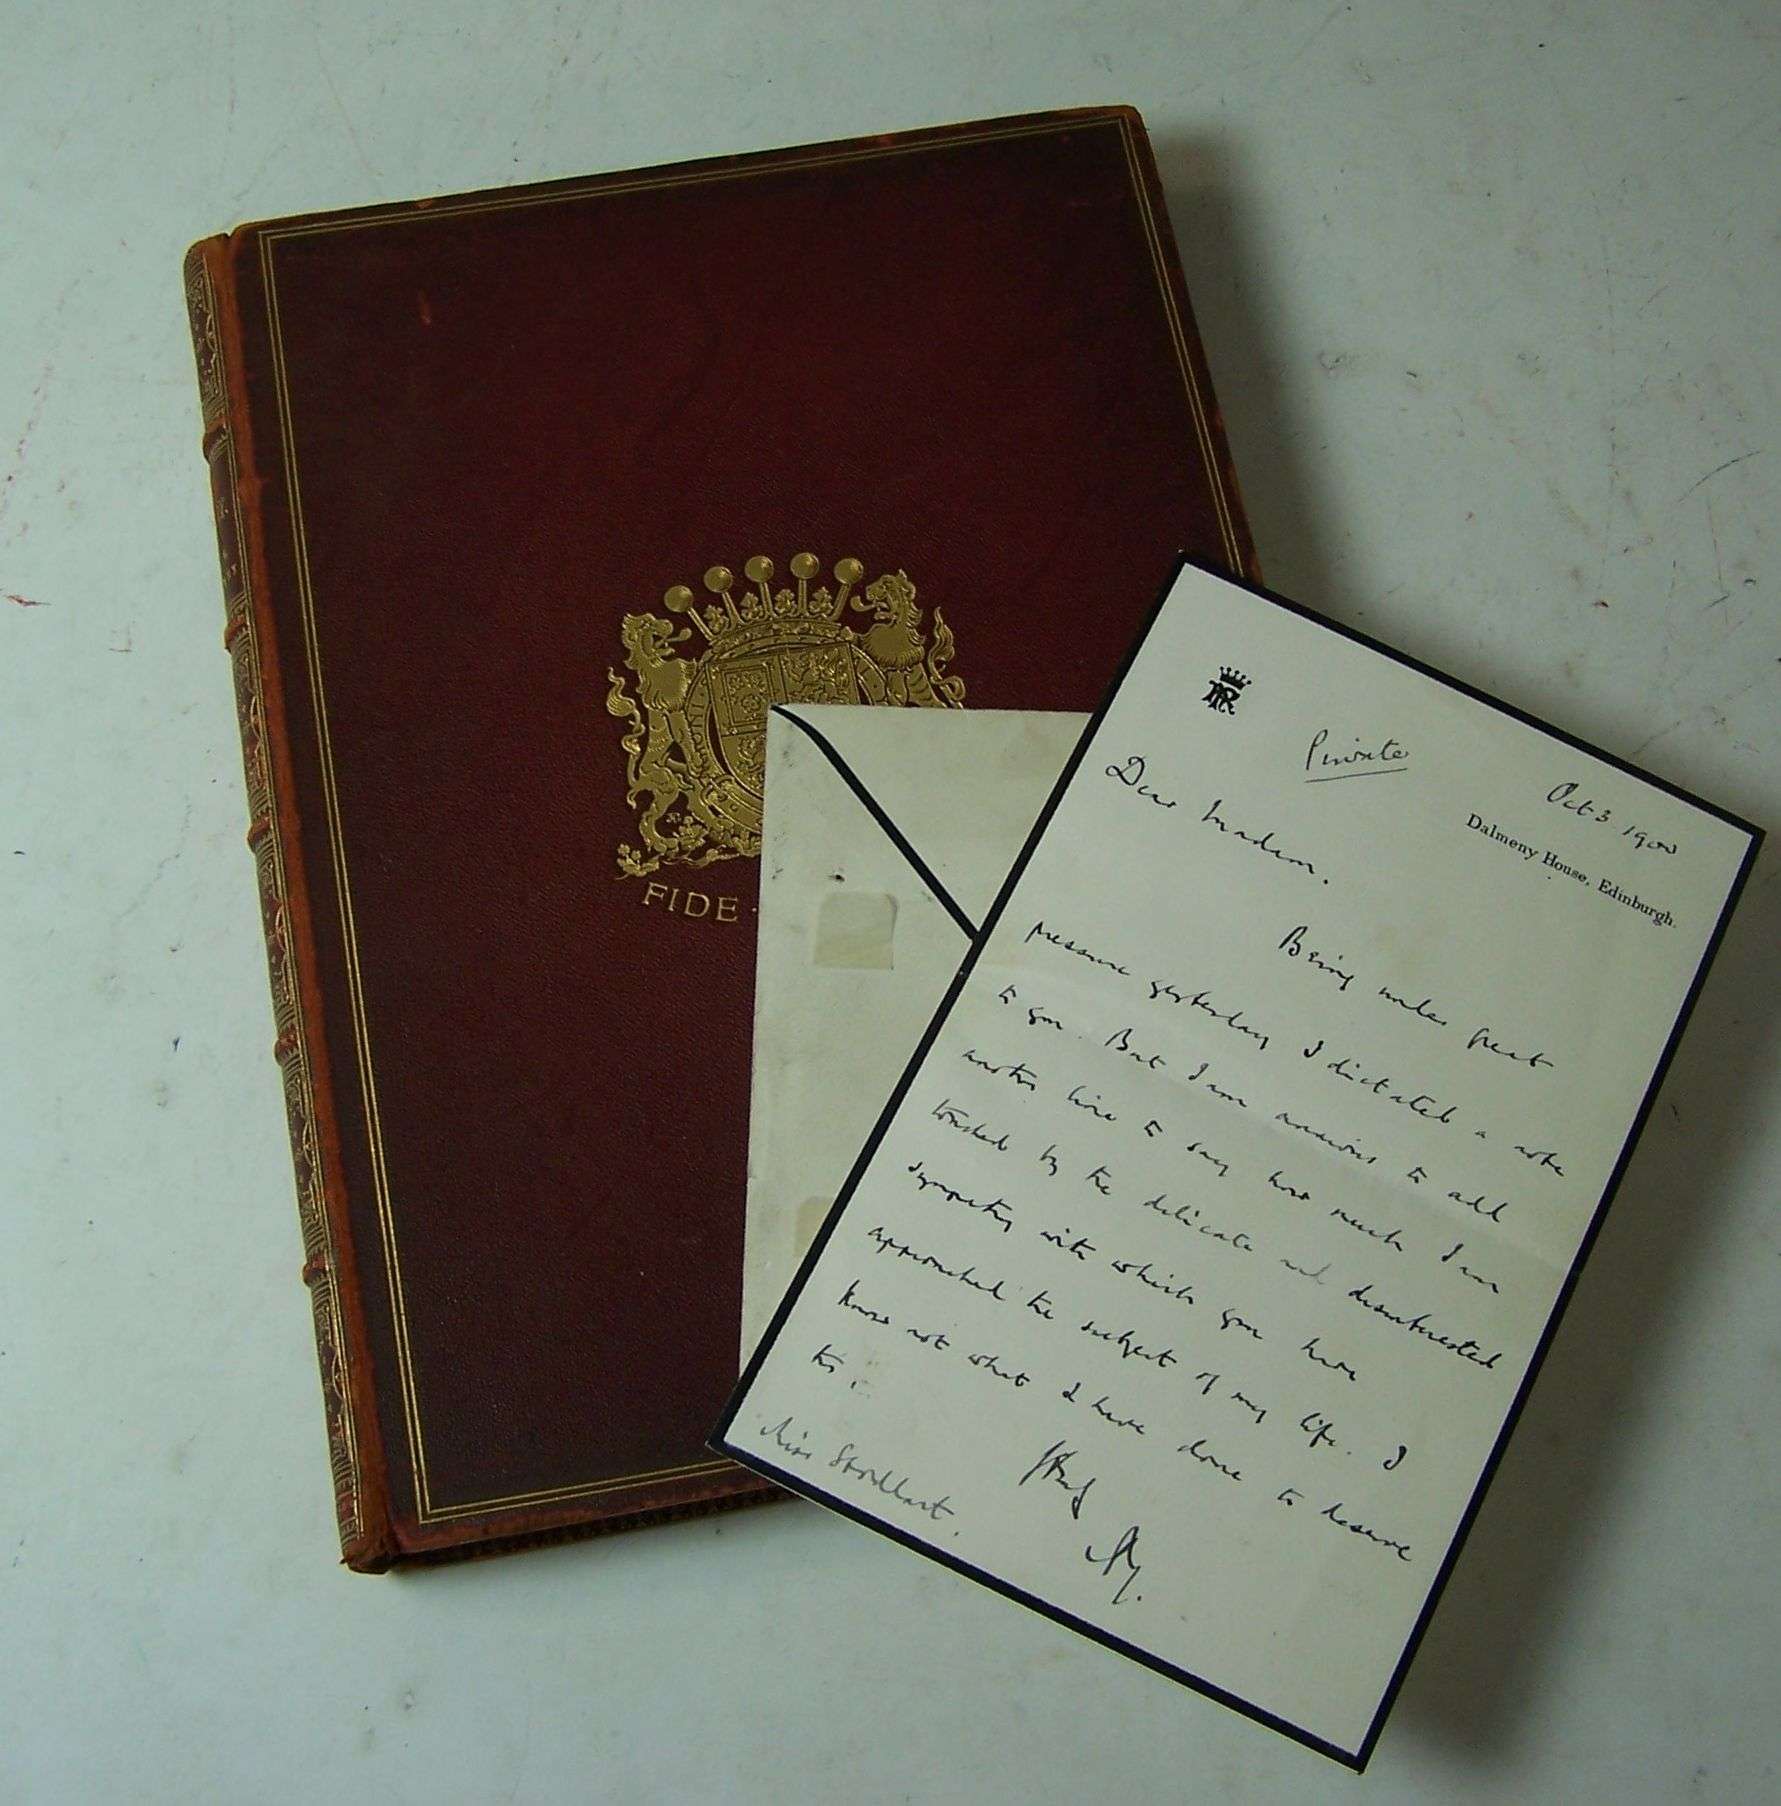 FIDE ·
AR
Private
Oct 3 1900
Dalmeny House, Edinburgh.
Dear Madam.
Being under great
pressure yesterday I dictated a note
to you. But I am anxious to add
another line to say how much I am
touched by the delicate and disinterested
sympathy with which you have
approached the subject of my life. I
know not what I have done to deserve
it.
AR
Miss Stoddart.